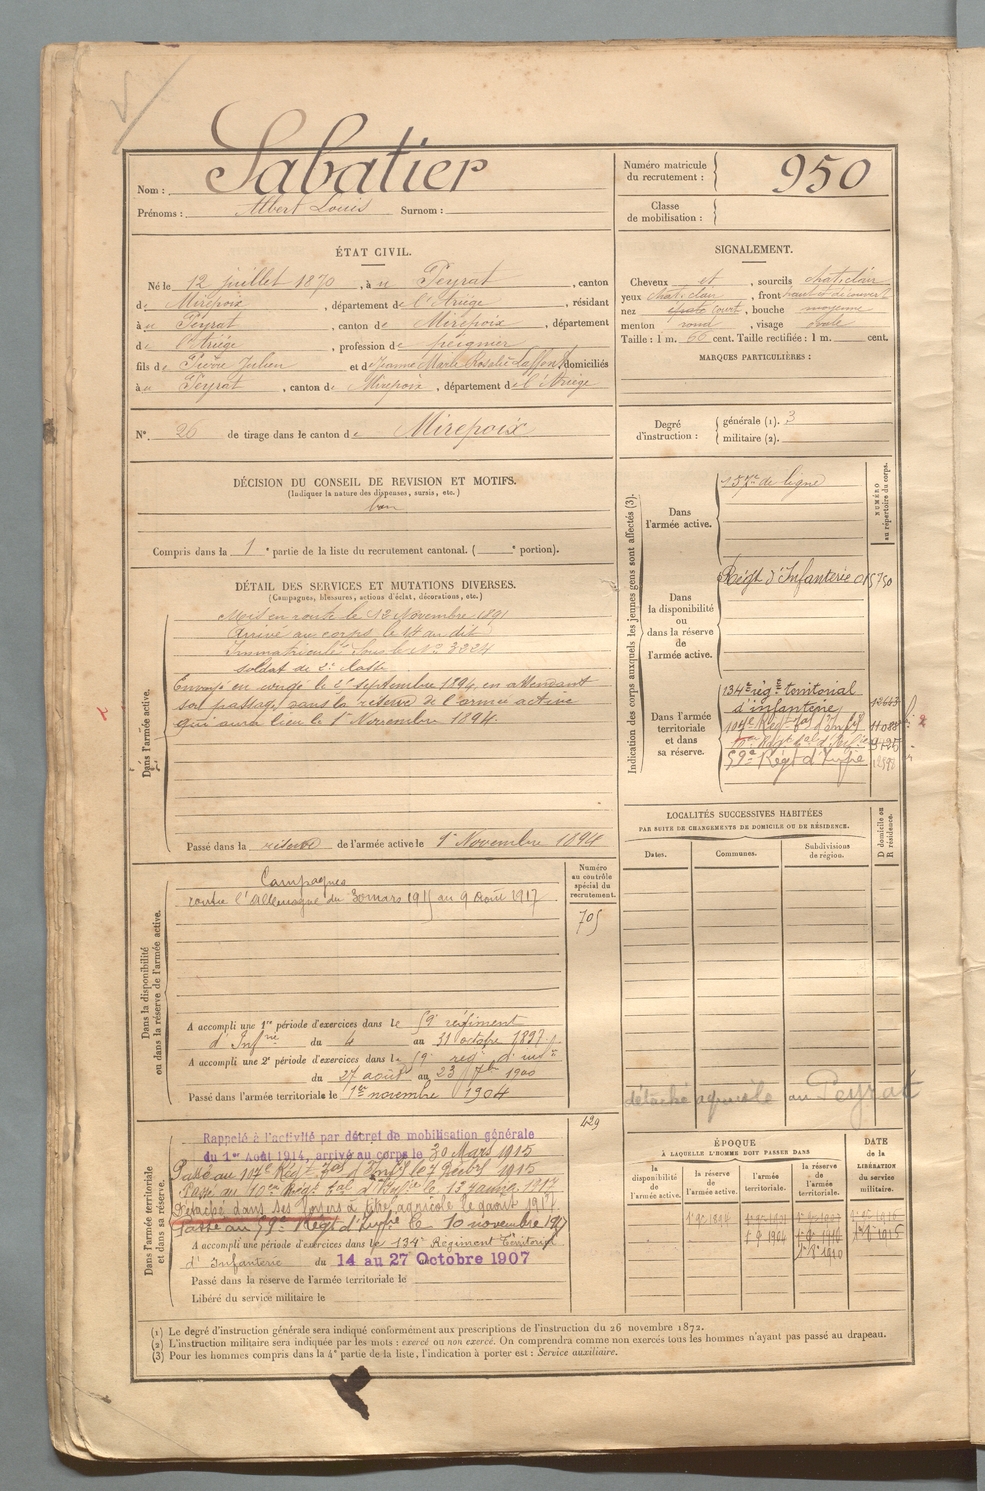 Nom : Sabatier
Prénoms : Albert Louis Surnom :
Numéro matricule
du recrutement : 950
Classe
de mobilisation :
ÉTAT CIVIL.
Né le 12 juillet 1870, à Peyrat, canton
de Mirepoix, département de l'Ariège, résidant
à Peyrat, canton de Mirepoix, département
de l'Ariège, profession de peignier
fils de Pierre Julien et de Jeanne Marie Rosalie Laffont domiciliés
à Peyrat, canton de Mirepoix, département de l'Ariège
N° 26 de tirage dans le canton de Mirepoix
SIGNALEMENT.
Cheveux et, sourcils chat. clair
yeux chat. clair, front haut et découvert
nez court, bouche moyenne
menton rond, visage ovale
Taille : 1 m. 66 cent. Taille rectifiée : 1 m. cent.
MARQUES PARTICULIÈRES :
Degré
d'instruction :
générale (1). 3
militaire (2).
DÉCISION DU CONSEIL DE REVISION ET MOTIFS.
(Indiquer la nature des dispenses, sursis, etc.)
bon
Compris dans la 1e partie de la liste du recrutement cantonal. ( e portion).
DÉTAIL DES SERVICES ET MUTATIONS DIVERSES.
(Campagnes, blessures, actions d'éclat, décorations, etc.)
Dans l'armée active.
Mis en route le 12 Novembre 1891
Arrivé au corps le 14 au dit
Immatriculé sous le N° 3324
soldat de 2e classe
Envoyé en congé le 2 septembre 1894, en attendant
son passage dans la réserve de l'armée active
qui aura lieu le 1er Novembre 1894.
Passé dans la réserve de l'armée active le 1er Novembre 1894
Indication des corps auxquels les jeunes gens sont affectés (3).
NUMÉRO
au répertoire du corps.
Dans
l'armée active.
de ligne
Dans
la disponibilité
ou
dans la réserve
de
l'armée active.
Régt d'Infanterie
Dans l'armée
territoriale
et dans
sa réserve.
134e rég. territorial
d'infanterie
59e Régt d'Infie
LOCALITÉS SUCCESSIVES HABITÉES
PAR SUITE DE CHANGEMENTS DE DOMICILE OU DE RÉSIDENCE.
Dates.
Communes.
Subdivisions
de région.
D domicile ou
R résidence.
détaché agricole au Peyrat
Dans la disponibilité
ou dans la réserve de l'armée active.
Numéro
au contrôle
spécial du
recrutement.
705
Campagnes
contre l'Allemagne du 30 mars 1915 au 9 Août 1917
A accompli une 1re période d'exercices dans le 59e régiment
d'Infrie du 4 au 31 octobre 1897
A accompli une 2e période d'exercices dans le 59e rég. d'
du 27 août au 23 7bre 1900
Passé dans l'armée territoriale le 1er novembre 1904
Dans l'armée territoriale
et dans sa réserve.
429
Rappelé à l'activité par décret de mobilisation générale
du 1er Août 1914, arrivé au corps le 30 Mars 1915
Passé au Régt d'Infie le 7 1915
Passé au Régt d'Infie le 13 1917
Détaché dans ses foyers à titre agricole le 9 août 1917.
Passé au 59e Régt d'Infie le 10 novembre 1917
A accompli une période d'exercices dans le 134e Régiment Territorial
d'Infanterie du 14 au 27 Octobre 1907
Passé dans la réserve de l'armée territoriale le
Libéré du service militaire le
ÉPOQUE
À LAQUELLE L'HOMME DOIT PASSER DANS
DATE
de la
LIBÉRATION
du service
militaire.
la
disponibilité
de l'armée active.
la réserve
de
l'armée active.
l'armée
territoriale.
la réserve
de
l'armée
territoriale.
(1) Le degré d'instruction générale sera indiqué conformément aux prescriptions de l'instruction du 26 novembre 1872.
(2) L'instruction militaire sera indiquée par les mots : exercé ou non exercé. On comprendra comme non exercés tous les hommes n'ayant pas passé au drapeau.
(3) Pour les hommes compris dans la 4e partie de la liste, l'indication à porter est : Service auxiliaire.